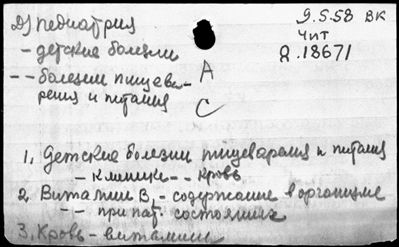 2) педиатрия
- детские болезни
-- болезни пищева-
рения и питания
9.5.58 ВК
Чит
Я.18671
А
С
1. Детские болезни пищеварения и питания
- клиника -- кровь
2. Витамин B₁ - содержание в организме
-- при пат. состояниях
3. Кровь - витамины